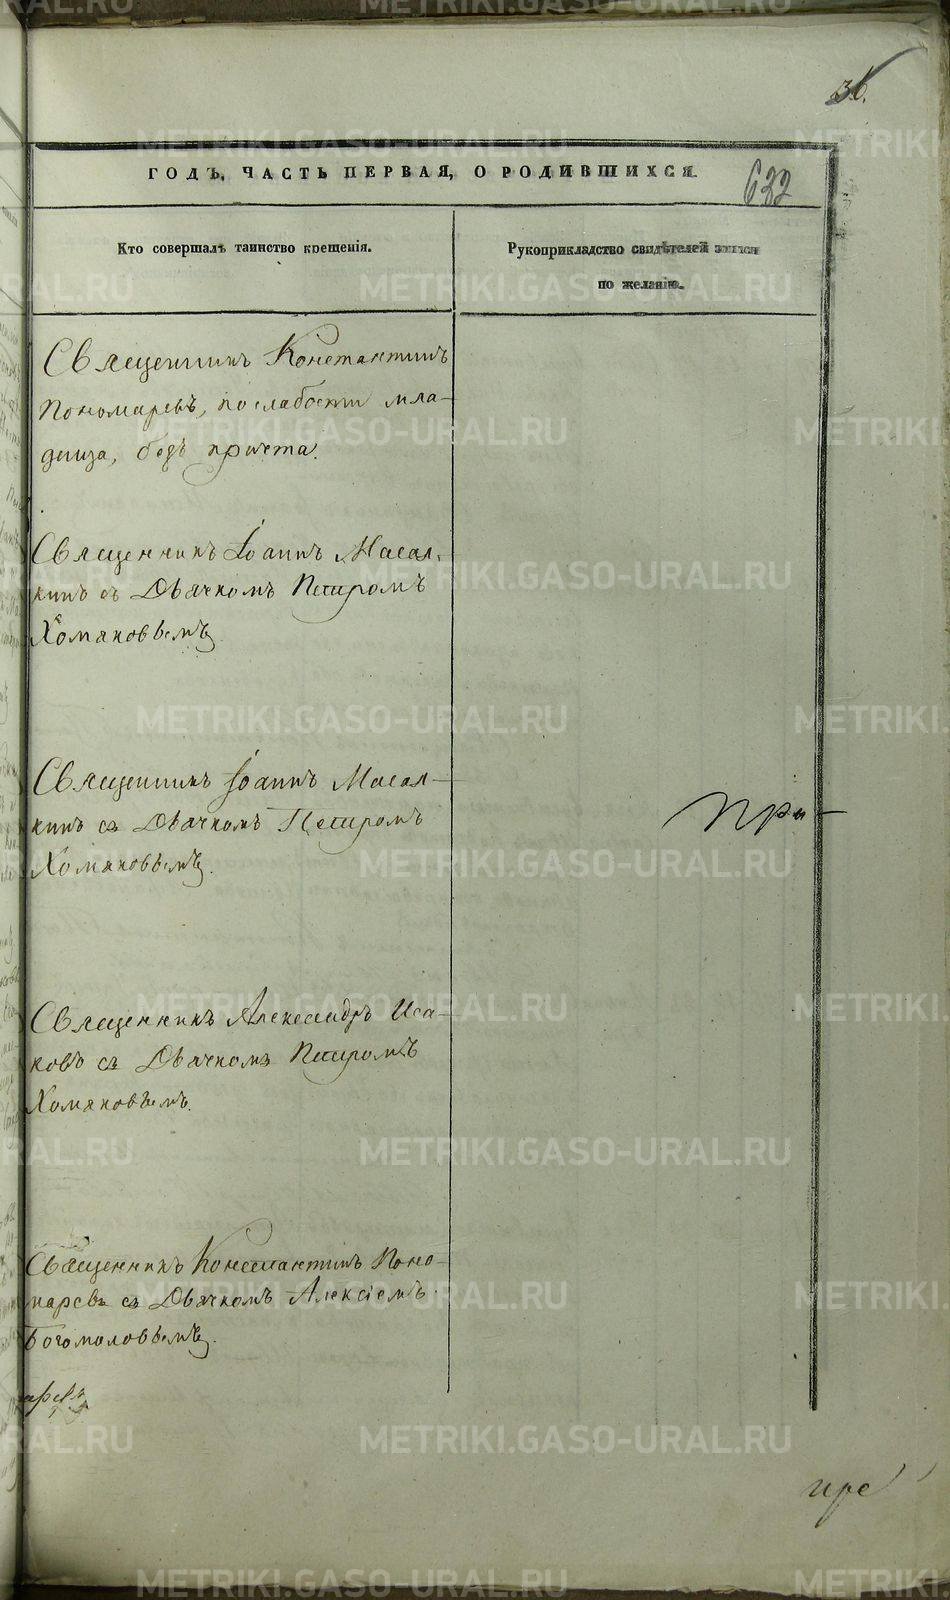 36.
ГОДЪ, ЧАСТЬ ПЕРВАЯ, О РОДИВШИХСЯ.
622
Кто совершалъ таинство крещенія.
Рукоприкладство свидѣтелей записи
по желанію.
Священникъ Константинъ
Пономаревъ, по слабости мла-
денца, безъ причта.
Священникъ Іоаннъ Масал-
кинъ съ Дьячкомъ Петромъ
Хомяковымъ
Священникъ Іоаннъ Масал-
кинъ съ Дьячкомъ Петромъ
Хомяковымъ.
При-
Священникъ Александръ Иса-
ковъ съ Дьячкомъ Петромъ
Хомяковымъ.
Священникъ Константинъ Поно-
маревъ съ Дьячкомъ Алексіемъ
Богомоловымъ.
METRIKI.GASO-URAL.RU